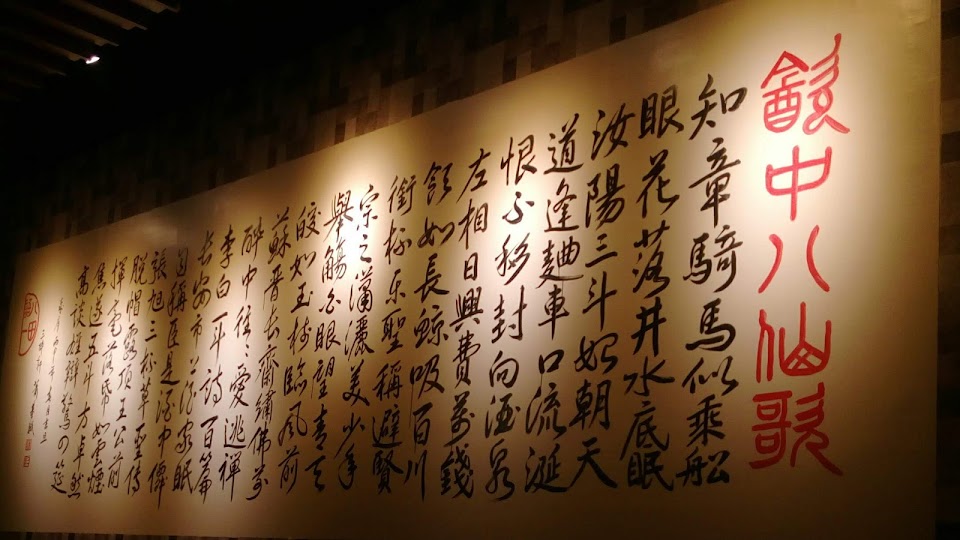 飲中八仙歌
知章騎馬似乘舩
眼花落井水底眠
汝陽三斗始朝天
道逢麯車口流涎
恨不移封向酒泉
左相日興費萬錢
飲如長鯨吸百川
銜杯樂聖稱避賢
宗之瀟灑美少年
舉觴白眼望青天
皎如玉樹臨風前
蘇晉長齋繡佛前
醉中往々愛逃禪
李白一斗詩百篇
長安市上酒家眠
自稱臣是酒中僊
張旭三杯草聖傳
脫帽露頂王公前
揮毫落紙如雲煙
焦遂五斗方卓然
高談雄辯驚四筵